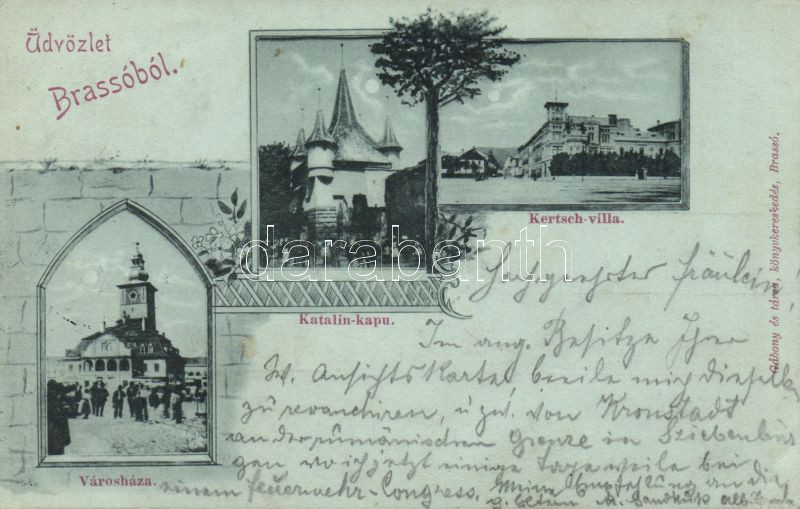 Üdvözlet
Brassóból.
Kertsch-villa.
Katalin-kapu.
Városháza.
Gábony és társa, könyvkereskedés, Brassó.
darabanth
Hochgeehrtes Fräulein!
Im ang. Besitze Ihrer
W. Ansichtskarte, beeile mich dieselbe
zu revanchiren, u. zw. von Kronstadt
an der rumänischen Grenze in Siebenbür
gen wo ich jetzt einige Tage weile bei
einem Feuerwehr-Congress. Meine Empfehlung an die
g. Eltern